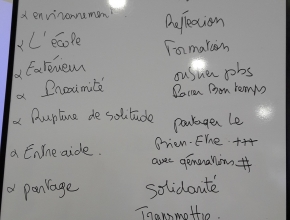 environnement
L'école
Extérieur
Proximité
Rupture de solitude
Entre aide.
partage
Réflexion
Formation
oublier jobs
Passer Bon temps
partager le
Bien-Etre +++
avec générations #
Solidarité
Transmettre